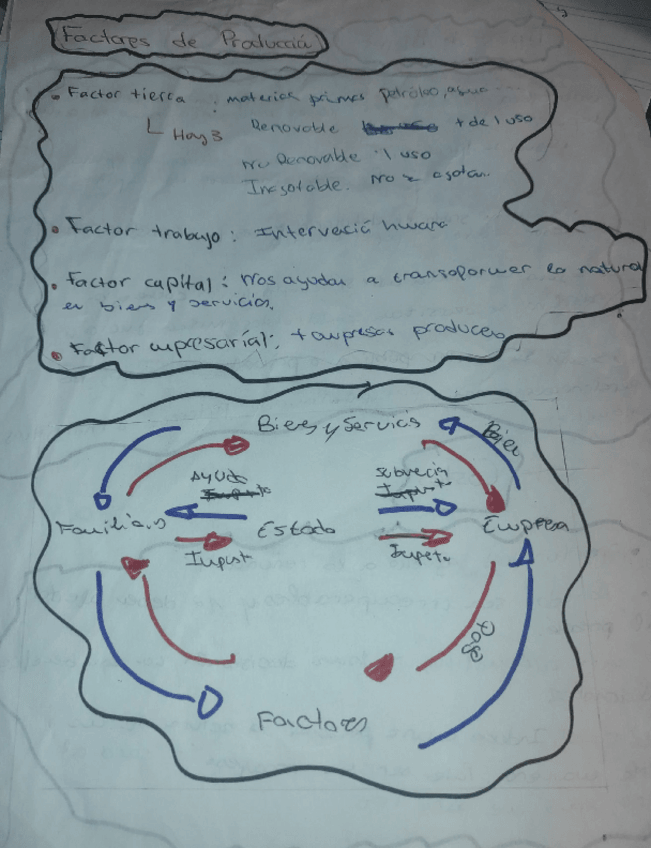 Factores de Producció
• Factor tierra : materias primas petróleo, agua
Hay 3 Renovable + de 1 uso
No Renovable 1 uso
Inagotable. No se agotan..
• Factor trabajo : Intervecció humana
• Factor capital : Nos ayudan a transoformer la natura
en bienes y servicios.
• Factor empresarial: + empresas producen
Bienes y Servicis
Bienes
Ayuda
Subvecia
Familias
Estado
Empresa
Impust
Impeto
Pago
Factores